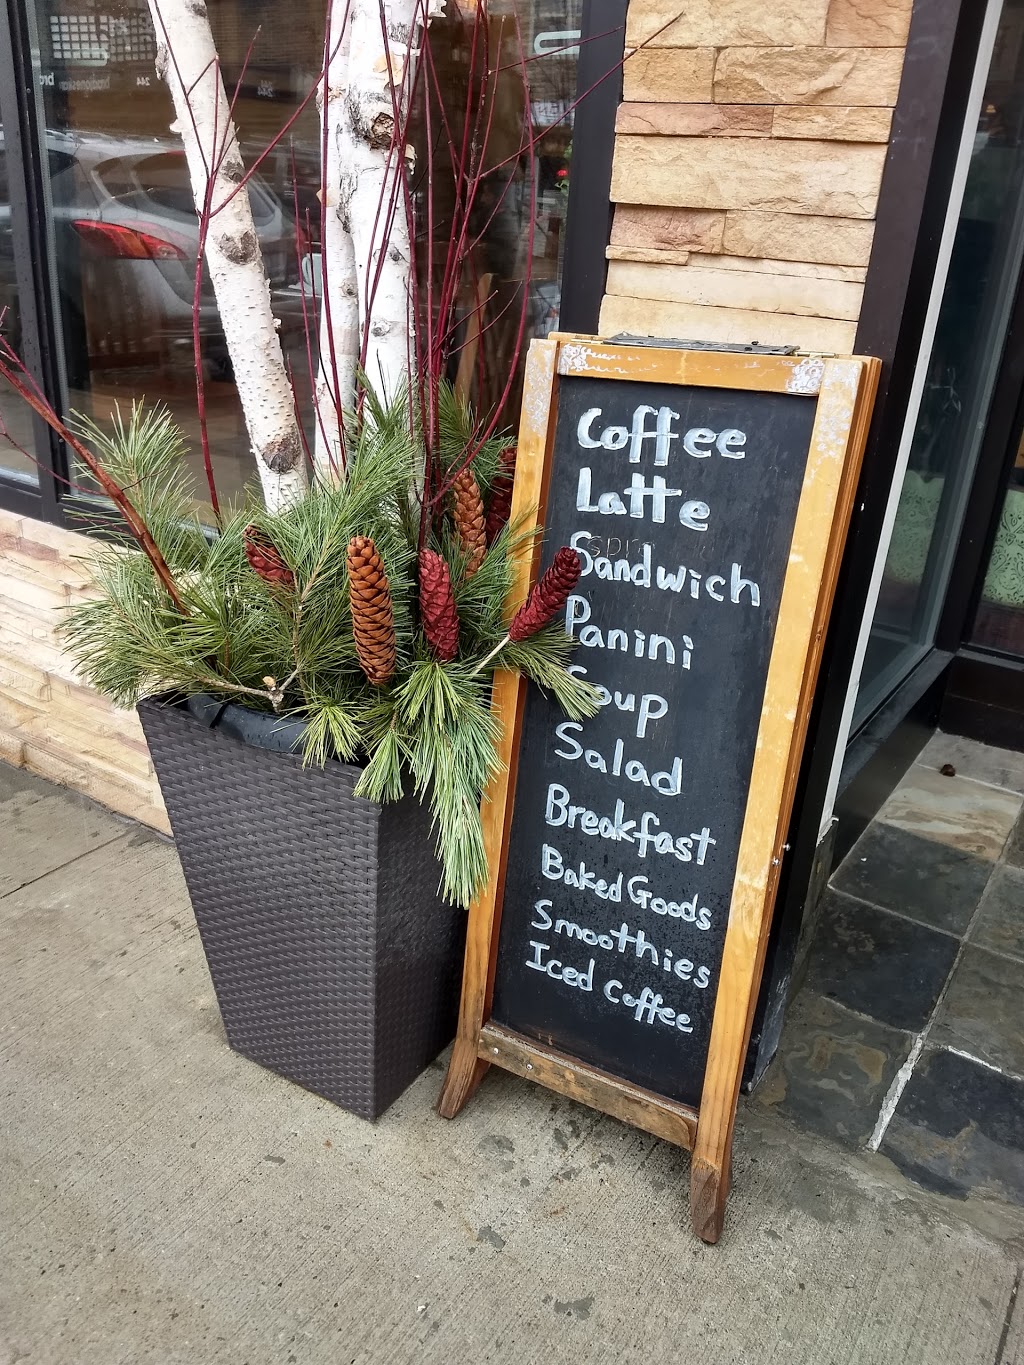 Coffee
Latte
Sandwich
Panini
Soup
Salad
Breakfast
Baked Goods
Smoothies
Iced Coffee